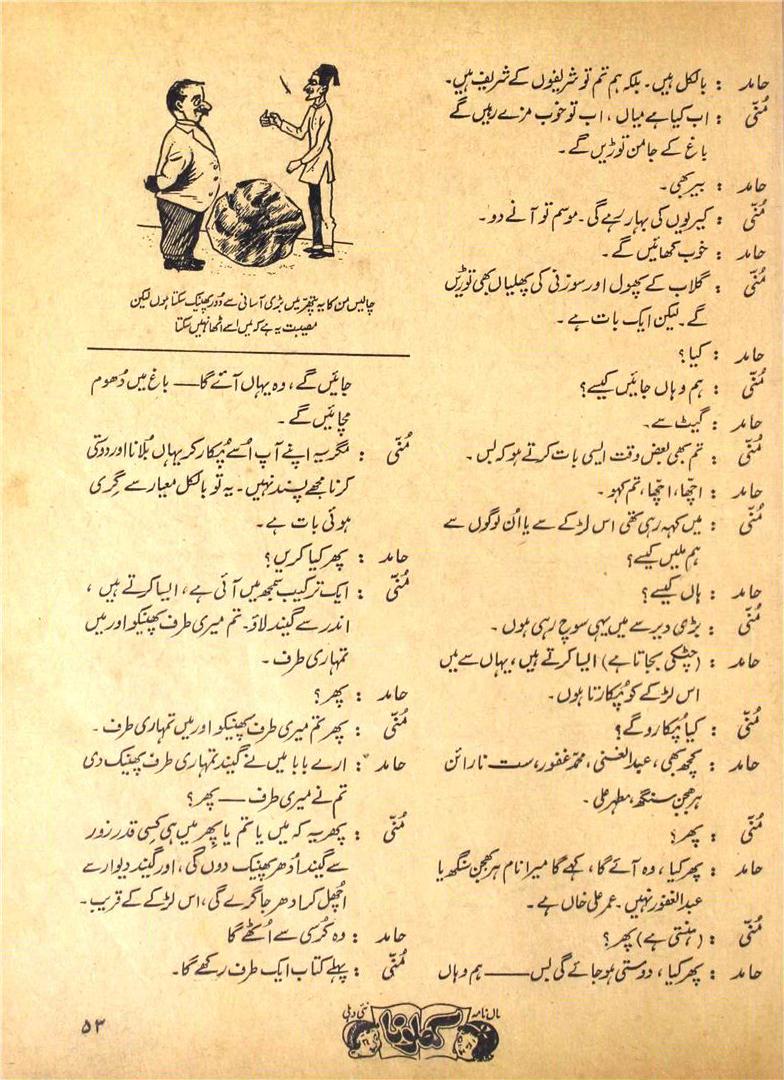 حامد : بالکل ہیں۔ بلکہ ہم تم تو شریفوں کے شریف ہیں۔
مُنّی : اب کیا ہے میاں ، اب تو خوب مزے رہیں گے
باغ کے جامن توڑیں گے۔
حامد : بیر بھی۔
مُنّی : کیریوں کی بہار رہے گی۔ موسم تو آنے دو۔
حامد : خوب کھائیں گے۔
مُنّی : گلاب کے پھول اور سوزنی کی پھلیاں بھی توڑیں
گے۔ لیکن ایک بات ہے۔
حامد : کیا؟
مُنّی : ہم وہاں جائیں کیسے؟
حامد : گیٹ سے۔
مُنّی : تم بھی بعض وقت ایسی بات کرتے ہو کہ بس۔
حامد : اچّھا، اچّھا، تم کہو۔
مُنّی : میں کہہ رہی تھی اس لڑکے سے یا اُن لوگوں سے
ہم ملیں کیسے؟
حامد : ہاں کیسے؟
مُنّی : بڑی دیر سے میں یہی سوچ رہی ہوں۔
حامد : (چٹکی بجاتا ہے) ایسا کرتے ہیں، یہاں سے میں
اس لڑکے کو پُکارتا ہوں۔
مُنّی : کیا پُکارو گے؟
حامد : کچھ بھی، عبدالغنی، محمد غفور، ست نارائن
ہربھجن سنگھ، مطہر علی۔
مُنّی : پھر؟
حامد : پھر کیا، وہ آئے گا، کہے گا میرا نام ہربھجن سنگھ یا
عبدالغفور نہیں۔ عمر علی خاں ہے۔
مُنّی : (ہنستی ہے) پھر؟
حامد : پھر کیا، دوستی ہو جائے گی بس —— ہم وہاں
چالیس من کا یہ پتھر میں بڑی آسانی سے دُور پھینک سکتا ہوں لیکن
مصیبت یہ ہے کہ میں اسے اٹھا نہیں سکتا
جائیں گے، وہ یہاں آئے گا —— باغ میں دُھوم
مچائیں گے۔
مُنّی : مگر یہ اپنے آپ اُسے پُکار کر یہاں بُلانا اور دوستی
کرنا مجھے پسند نہیں۔ یہ تو بالکل معیار سے گِری
ہوئی بات ہے۔
حامد : پھر کیا کریں؟
مُنّی : ایک ترکیب سمجھ میں آئی ہے، ایسا کرتے ہیں،
اندر سے گیند لاؤ۔ تم میری طرف پھینکو اور میں
تمہاری طرف۔
حامد : پھر؟
مُنّی : پھر تم میری طرف پھینکو اور میں تمہاری طرف۔
حامد : ارے بابا میں نے گیند تمہاری طرف پھینک دی
تم نے میری طرف —— پھر؟
مُنّی : پھر یہ کہ میں یا تم یا پھر میں ہی کِسی قدر زور
سے گیند اُدھر پھینک دوں گی، اور گیند دیوار سے
اُچھل کر اُدھر جا گرے گی، اس لڑکے کے قریب۔
حامد : وہ کُرسی سے اُٹھے گا
مُنّی : پہلے کتاب ایک طرف رکھے گا۔
ماہنامہ کھلونا نئی دہلی
۵۳